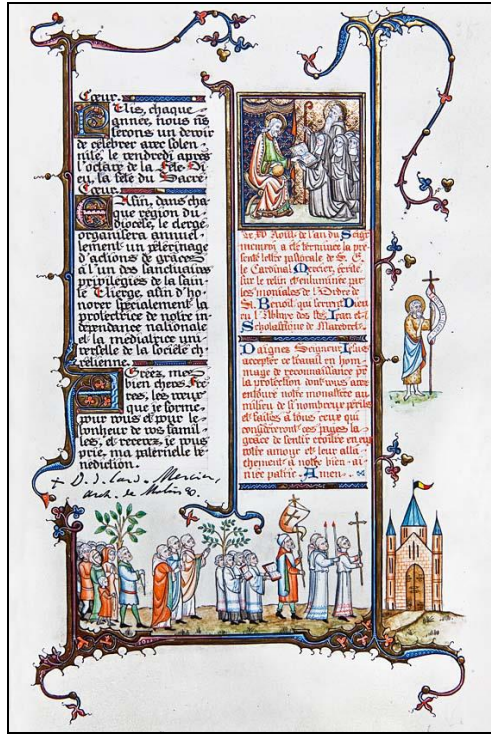 Cœur.
Elis, chaque
année, tous ns
ferons un devoir
de célébrer avec solen-
nité, le vendredi après
l'octave de la Fête-Di-
eu, la fête du Sacré-
Cœur.
Afin, dans cha-
que région du
diocèse, le clergé
organisera annuel-
lement un pèlerinage
d'actions de grâces
à l'un des sanctuaires
privilégiés de la sain-
te Vierge, afin d'ho-
norer spécialement la
protectrice de notre in-
dépendance nationale
et la médiatrice uni-
verselle de la société ch-
rétienne.
Agréez, mes
bien chers Frè-
res, les vœux
que je forme
pour vous et pour le
bonheur de vos famil-
les, et recevez, je vous
prie, ma paternelle bé-
nédiction.
+ D. J. Card. Mercier,
arch. de Malines.
Août de l'an du Seigr
a été terminée la pré-
sente lettre pastorale de S. E.
le Cardinal Mercier, écrite
sur le vélin et enluminée par
les moniales de l'Ordre de
S. Benoît qui servent Dieu
en l'Abbaye des Stes Jean et
Scholastique de Maredret.
Daignez Seigneur Jésus
accepter ce travail en hom-
mage de reconnaissance pr
la protection dont vous avez
entouré notre monastère au
milieu de si nombreux périls
et faites à tous ceux qui
considéreront ces pages la
grâce de sentir croître en eux
votre amour et leur atta-
chement à notre bien-ai-
mée patrie. Amen.